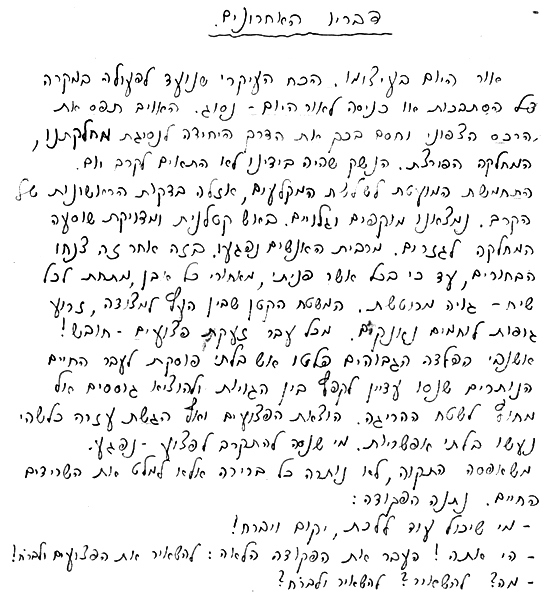 דבריו האחרונים.
אור היום בעיצומו. הכח העיקרי שנועד לפעולה במקרה
של הסתבכות או כניסה לאור היום - נסוג. האויב תפס את
הרכס הצפוני וחסם בכך את הדרך היחידה לנסיגת מחלקתנו,
המחלקה הפורצת. הנשק שהיה בידינו לא התאים לקרב יום.
התחמושת המועטת לשלושת המקלעים, אזלה בדקות הראשונות של
הקרב. נמצאנו מוקפים וגלויים. באש קטלנית ומדויקת שוסעה
המחלקה לגזרים. מרבית האנשים נפגעו. בזה אחר זה צנחו
הבחורים, עד כי בכל אשר פניתי, מאחורי כל אבן, מתחת לכל
שיח - גויה מרוטשת. המשטח הקטן שבין הגוף למצודה, זרוע
גופות לוחמים נאנקים. מכל עבר זעקת פצועים - חובש!
אשנבי הפלדה הגבוהים פלטו אש בלתי פוסקת לעבר החיים
הנותרים שנסו עדיין לקפץ בין הגוויות ולהוציא גוססים אל
מחוץ לשטח ההריגה. הוצאת הפצועים ואף הגשת עזרה כלשהי
נעשו בלתי אפשריות. מי שניסה להתקרב לפצוע - נפגע.
משאפסה התקוה, לא נותרה כל ברירה אלא למלט את השרידים
החיים. נתנה הפקודה:
- מי שיכול עוד ללכת, יקום ויברח!
- הי אתה! העבר את הפקודה הלאה: להשאיר את הפצועים ולברוח!
- מה? להשאיר? להשאיר ולברוח?